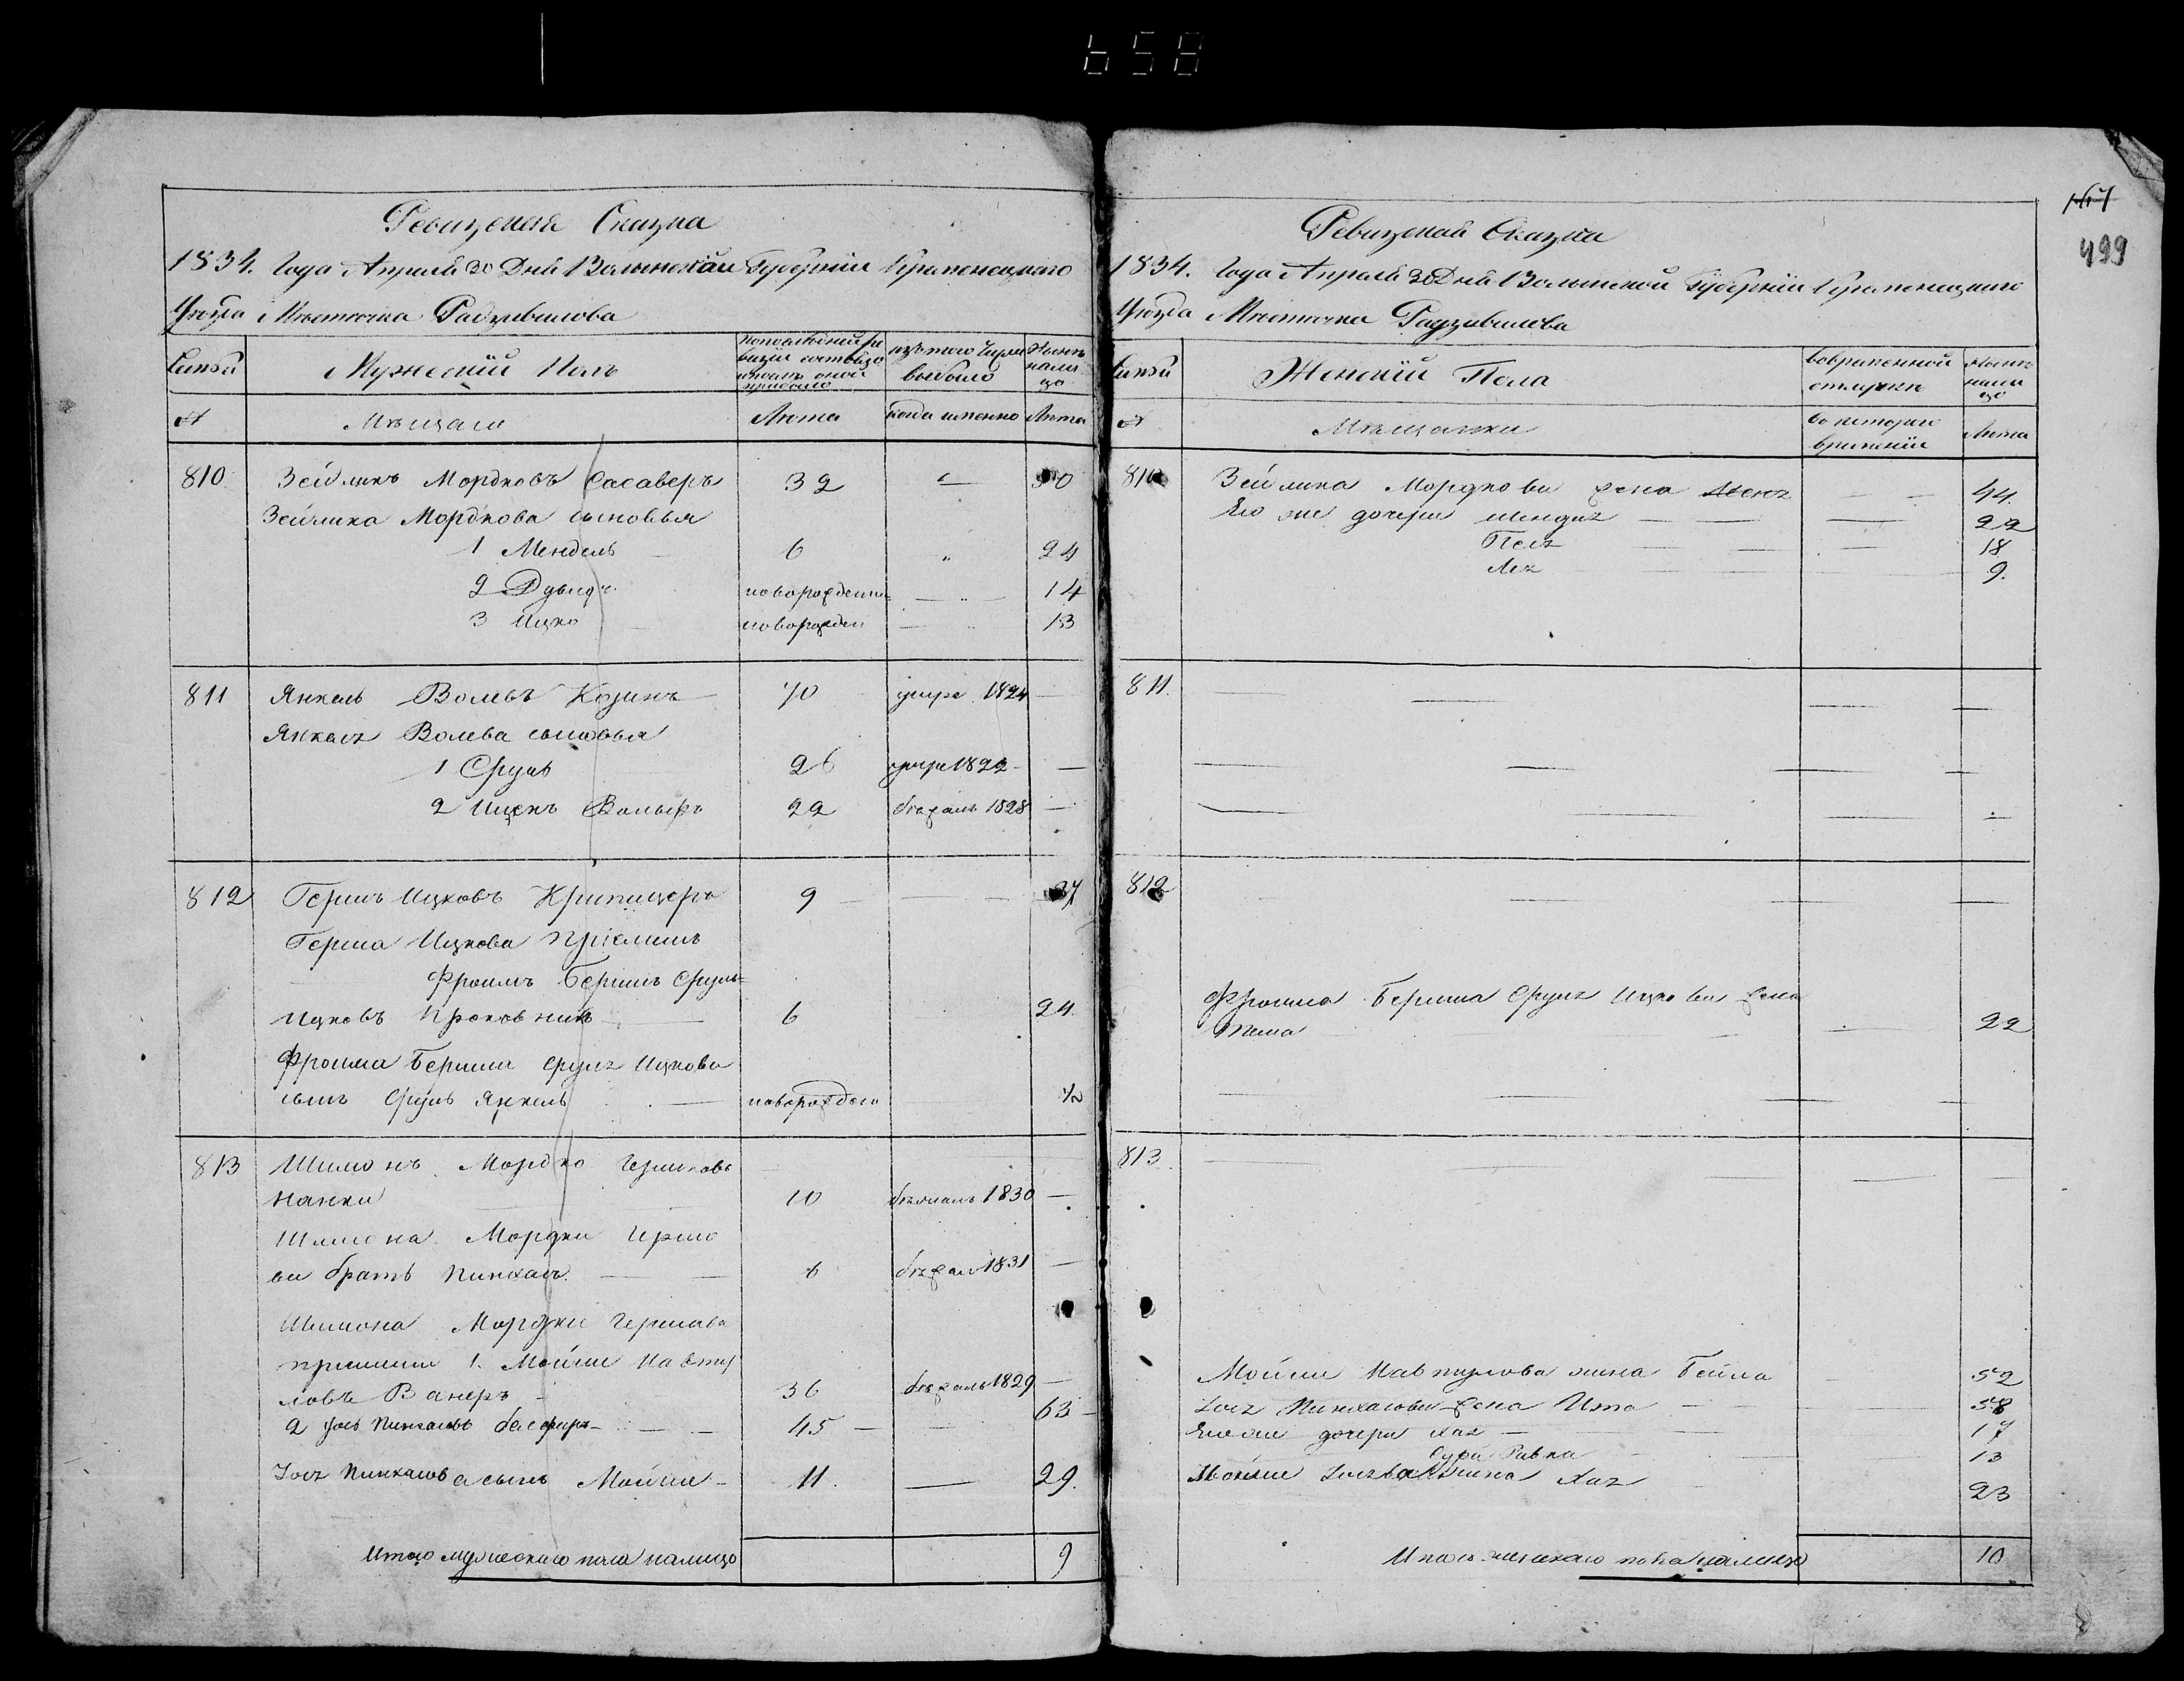 658
Ревизская Сказка
1834. Года Апреля 30 Дня Волынской Губернии Кременецкого
Уезда Местечка Радзивилова
Мужеский Полъ
выбыло
№
Мещане
Лета
когда именно
Лета
810
Зейликъ Мордковъ Сасаверъ
32
50
Зейлика Мордкова сыновья
1 Мендель
6
24
2 Дувидъ
новорожденн
14
3 Ицко
новорожден
13
811
Янкель Волевъ Козинъ
70
умре 1824
Янкеля Волева сыновья
1 Сруль
26
умре 1822
2 Ицекъ Вольфъ
22
бежалъ 1828
812
Гершъ Ицковъ Крипицеръ
9
Герша Ицкова приемышъ
Фроимъ Бершъ Сруль=
Ицковъ
6
24
Фроима Берша Сруля Ицкова
сынъ Сруль Янкель
новорожден
1/2
813
Шимонъ Мордко Гершковъ
10
бежалъ 1830
Шимона Мордки Гершо
ва братъ Пинхасъ
6
бежал 1831
Шимона Мордки Гершова
приемыши 1. Мойше Навту
ловъ Ванеръ
36
бежалъ 1829
2 Іось Пинхасовъ
45
63
Іося Пинхасова сынъ Мойше
11
29
Итого мужескаго пола налицо
9
167
499
Ревизская Сказка
1834. Года Апреля 30 Дня Волынской Губернии Кременецкого
Уезда Местечка Радзивилова
Женский Пола
временной
отлучке
№
Мещанки
Лета
810
Зейлика Мордкова жена
44
Его же дочери Шендля
22
Песя
18
Лея
9
811
812
Фроима Берша Сруля Ицкова жена
22
813
Мойши Навтулова жена Бейла
52
Іося Пинхасова жена Ита
58
Его же дочери Хая
17
Сура Ривка
13
Мойши жена Хая
23
Итого женскаго пола налицо
10